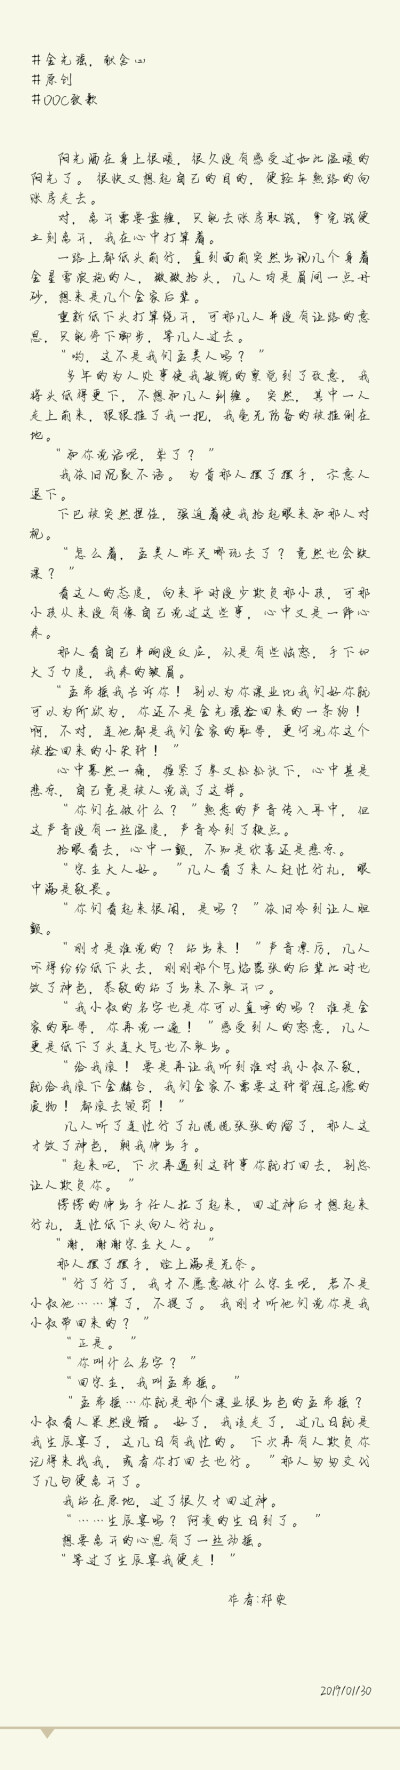 #金光瑶，献舍四
#原创
#OOC致歉
阳光洒在身上很暖，很久没有感受过如此温暖的
阳光了。很快又想起自己的目的，便轻车熟路的向
账房走去。
对，离开需要盘缠，只能去账房取钱，拿完钱便
立刻离开，我在心中打算着。
一路上都低头前行，直到面前突然出现几个身着
金星雪浪袍的人，微微抬头，几人均是眉间一点丹
砂，想来是几个金家后辈。
重新低下头打算绕开，可那几人并没有让路的意
思，只能停下脚步，等几人过去。
“哟，这不是我们孟美人吗？”
多年的为人处事使我敏锐的察觉到了敌意，我
将头低得更下，不想和几人纠缠。突然，其中一人
走上前来，狠狠推了我一把，我毫无防备的被推倒在
地。
“和你说话呢，聋了？”
我依旧沉默不语。为首那人摆了摆手，示意人
退下。
下巴被突然捏住，强迫着使我抬起眼来和那人对
视。
“怎么着，孟美人昨天哪玩去了？竟然也会缺
课？”
看这人的态度，向来平时没少欺负那小孩，可那
小孩从来没有像自己说过这些事，心中又是一阵心
疼。
那人看自己半晌没反应，似是有些恼怒，手下加
大了力度，我疼的皱眉。
“孟希瑶我告诉你！别以为你课业比我们好你就
可以为所欲为，你还不是金光瑶捡回来的一条狗！
啊，不对，连他都是我们金家的耻辱，更何况你这个
被捡回来的小杂种！”
心中蓦然一痛，握紧了拳又松松放下，心中甚是
悲凉，自己竟是被人说成了这样。
“你们在做什么？”熟悉的声音传入耳中，但
这声音没有一丝温度，声音冷到了极点。
抬眼看去，心中一颤，不知是欣喜还是悲凉。
“宗主大人好。”几人看了来人赶忙行礼，眼
中满是敬畏。
“你们看起来很闲，是吗？”依旧冷到让人胆
颤。
“刚才是谁说的？站出来！”声音凛厉，几人
吓得纷纷低下头去，刚刚那个气焰嚣张的后辈此时也
敛了神色，恭敬的站了出来不敢开口。
“我小叔的名字也是你可以直呼的吗？谁是金
家的耻辱，你再说一遍！”感受到人的怒意，几人
更是低下了头连大气也不敢出。
“给我滚！要是再让我听到谁对我小叔不敬，
就给我滚下金麟台，我们金家不需要这种背祖忘德的
废物！都滚去领罚！”
几人听了连忙行了礼慌慌张张的溜了，那人这
才敛了神色，朝我伸出手。
“起来吧，下次再遇到这种事你就打回去，别总
让人欺负你。”
愣愣的伸出手任人拉了起来，回过神后才想起来
行礼，连忙低下头向人行礼。
“谢，谢谢宗主大人。”
那人摆了摆手，脸上满是无奈。
“行了行了，我才不愿意做什么宗主呢，若不是
小叔他……算了，不提了。我刚才听他们说你是我
小叔带回来的？”
“正是。”
“你叫什么名字？”
“回宗主，我叫孟希瑶。”
“孟希瑶…你就是那个课业很出色的孟希瑶？
小叔看人果然没错。好了，我该走了，过几日就是
我生辰宴了，这几日有我忙的。下次再有人欺负你
记得来找我，或者你打回去也行。”那人匆匆交代
了几句便离开了。
我站在原地，过了很久才回过神。
“……生辰宴吗？阿凌的生日到了。”
想要离开的心思有了一丝动摇。
“等过了生辰宴我便走！”
作者:祁奕
2019/01/30